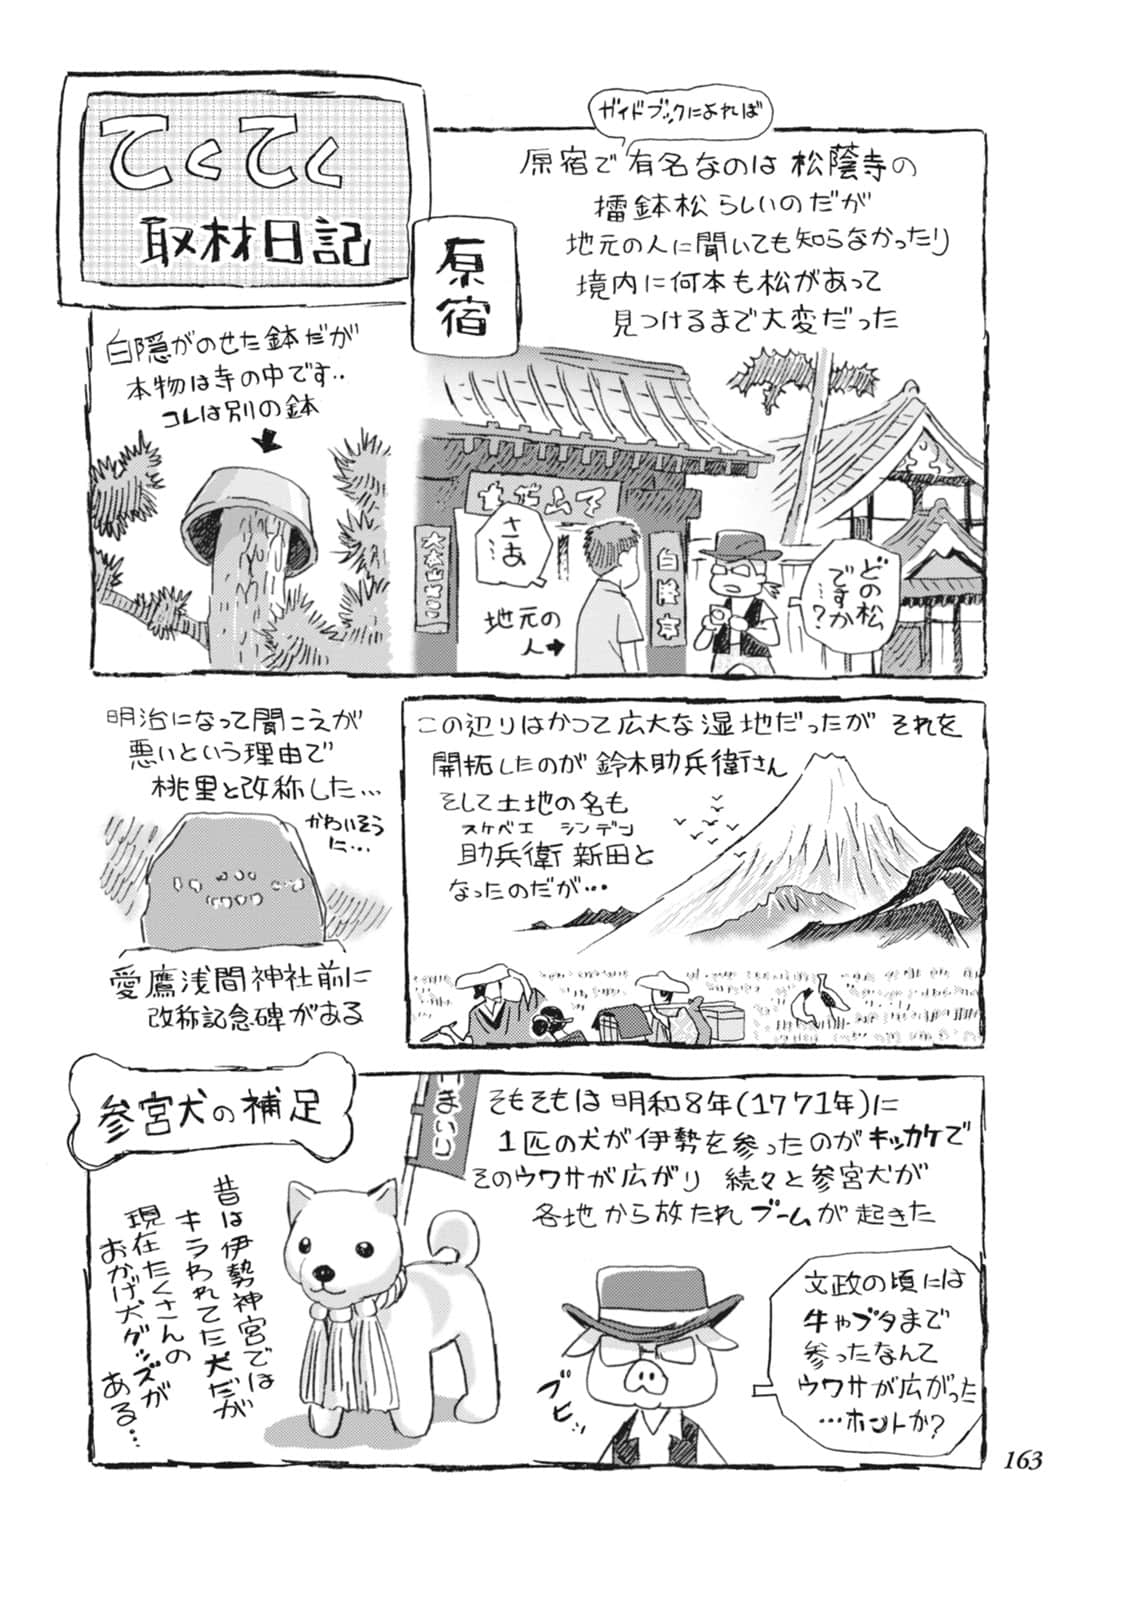 てくてく
取材日記
原宿
ガイドブックによれば
原宿で有名なのは松蔭寺の
擂鉢松らしいのだが
地元の人に聞いても知らなかったり
境内に何本も松があって
見つけるまで大変だった
どの松
ですか
…?
さあ
…
地元の
人→
白隠がのせた鉢だが
本物は寺の中です..
コレは別の鉢
この辺りはかつて広大な湿地だったが それを
開拓したのが鈴木助兵衛さん
そして土地の名も
スケベエ シンデン
助兵衛新田と
なったのだが…
明治になって聞こえが
悪いという理由で
桃里と改称した…
かわいそう
に…
愛鷹浅間神社前に
改称記念碑がある
参宮犬の補足
そもそもは明和8年(1771年)に
1匹の犬が伊勢を参ったのがキッカケで
そのウワサが広がり 続々と参宮犬が
各地から放たれブームが起きた
まいり
昔は伊勢神宮では
キラわれてた犬だが
現在たくさんの
おかげ犬グッズが
ある…
文政の頃には
牛やブタまで
参ったなんて
ウワサが広がった
…ホントか?
ブヒッ
163